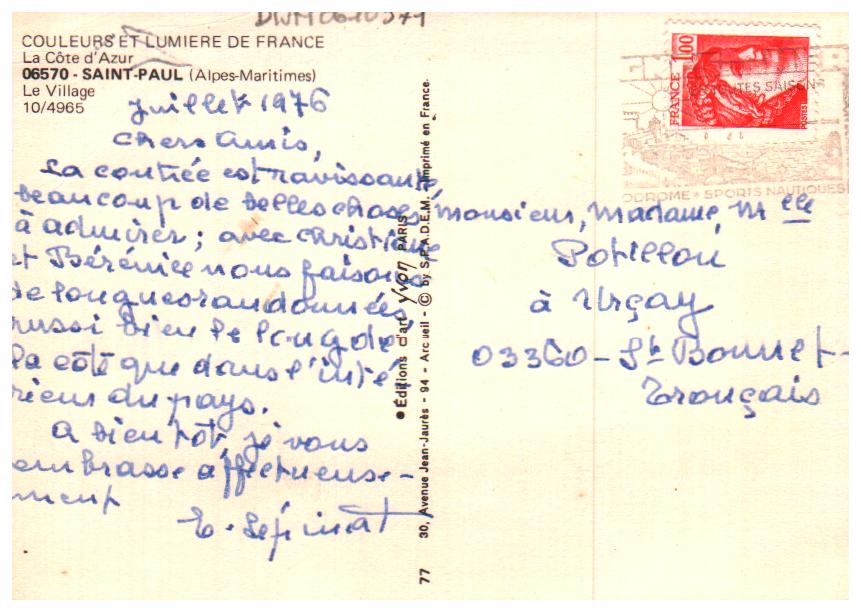 COULEURS ET LUMIERE DE FRANCE
La Côte d'Azur
06570 - SAINT-PAUL (Alpes-Maritimes)
Le Village
10/4965
juillet 1976
chers amis,
La contrée est ravissante,
beaucoup de belles choses
à admirer ; avec Christiane
et Bérénice nous faisons
de longues randonnées
aussi bien le long de
la côte que dans l'inté
rieur du pays.
A bientôt, je vous
embrasse affectueuse-
ment
Monsieur, Madame, Mlle
Potillon
à Urçay
03360 - St Bonnet-
Tronçais
● Éditions d'art yvon PARIS
30, Avenue Jean-Jaurès - 94 - Arcueil - © by S.P.A.D.E.M. Imprimé en France.
77
FRANCE 1,00
POSTES
TOUTES SAISONS
DROME * SPORTS NAUTIQUES